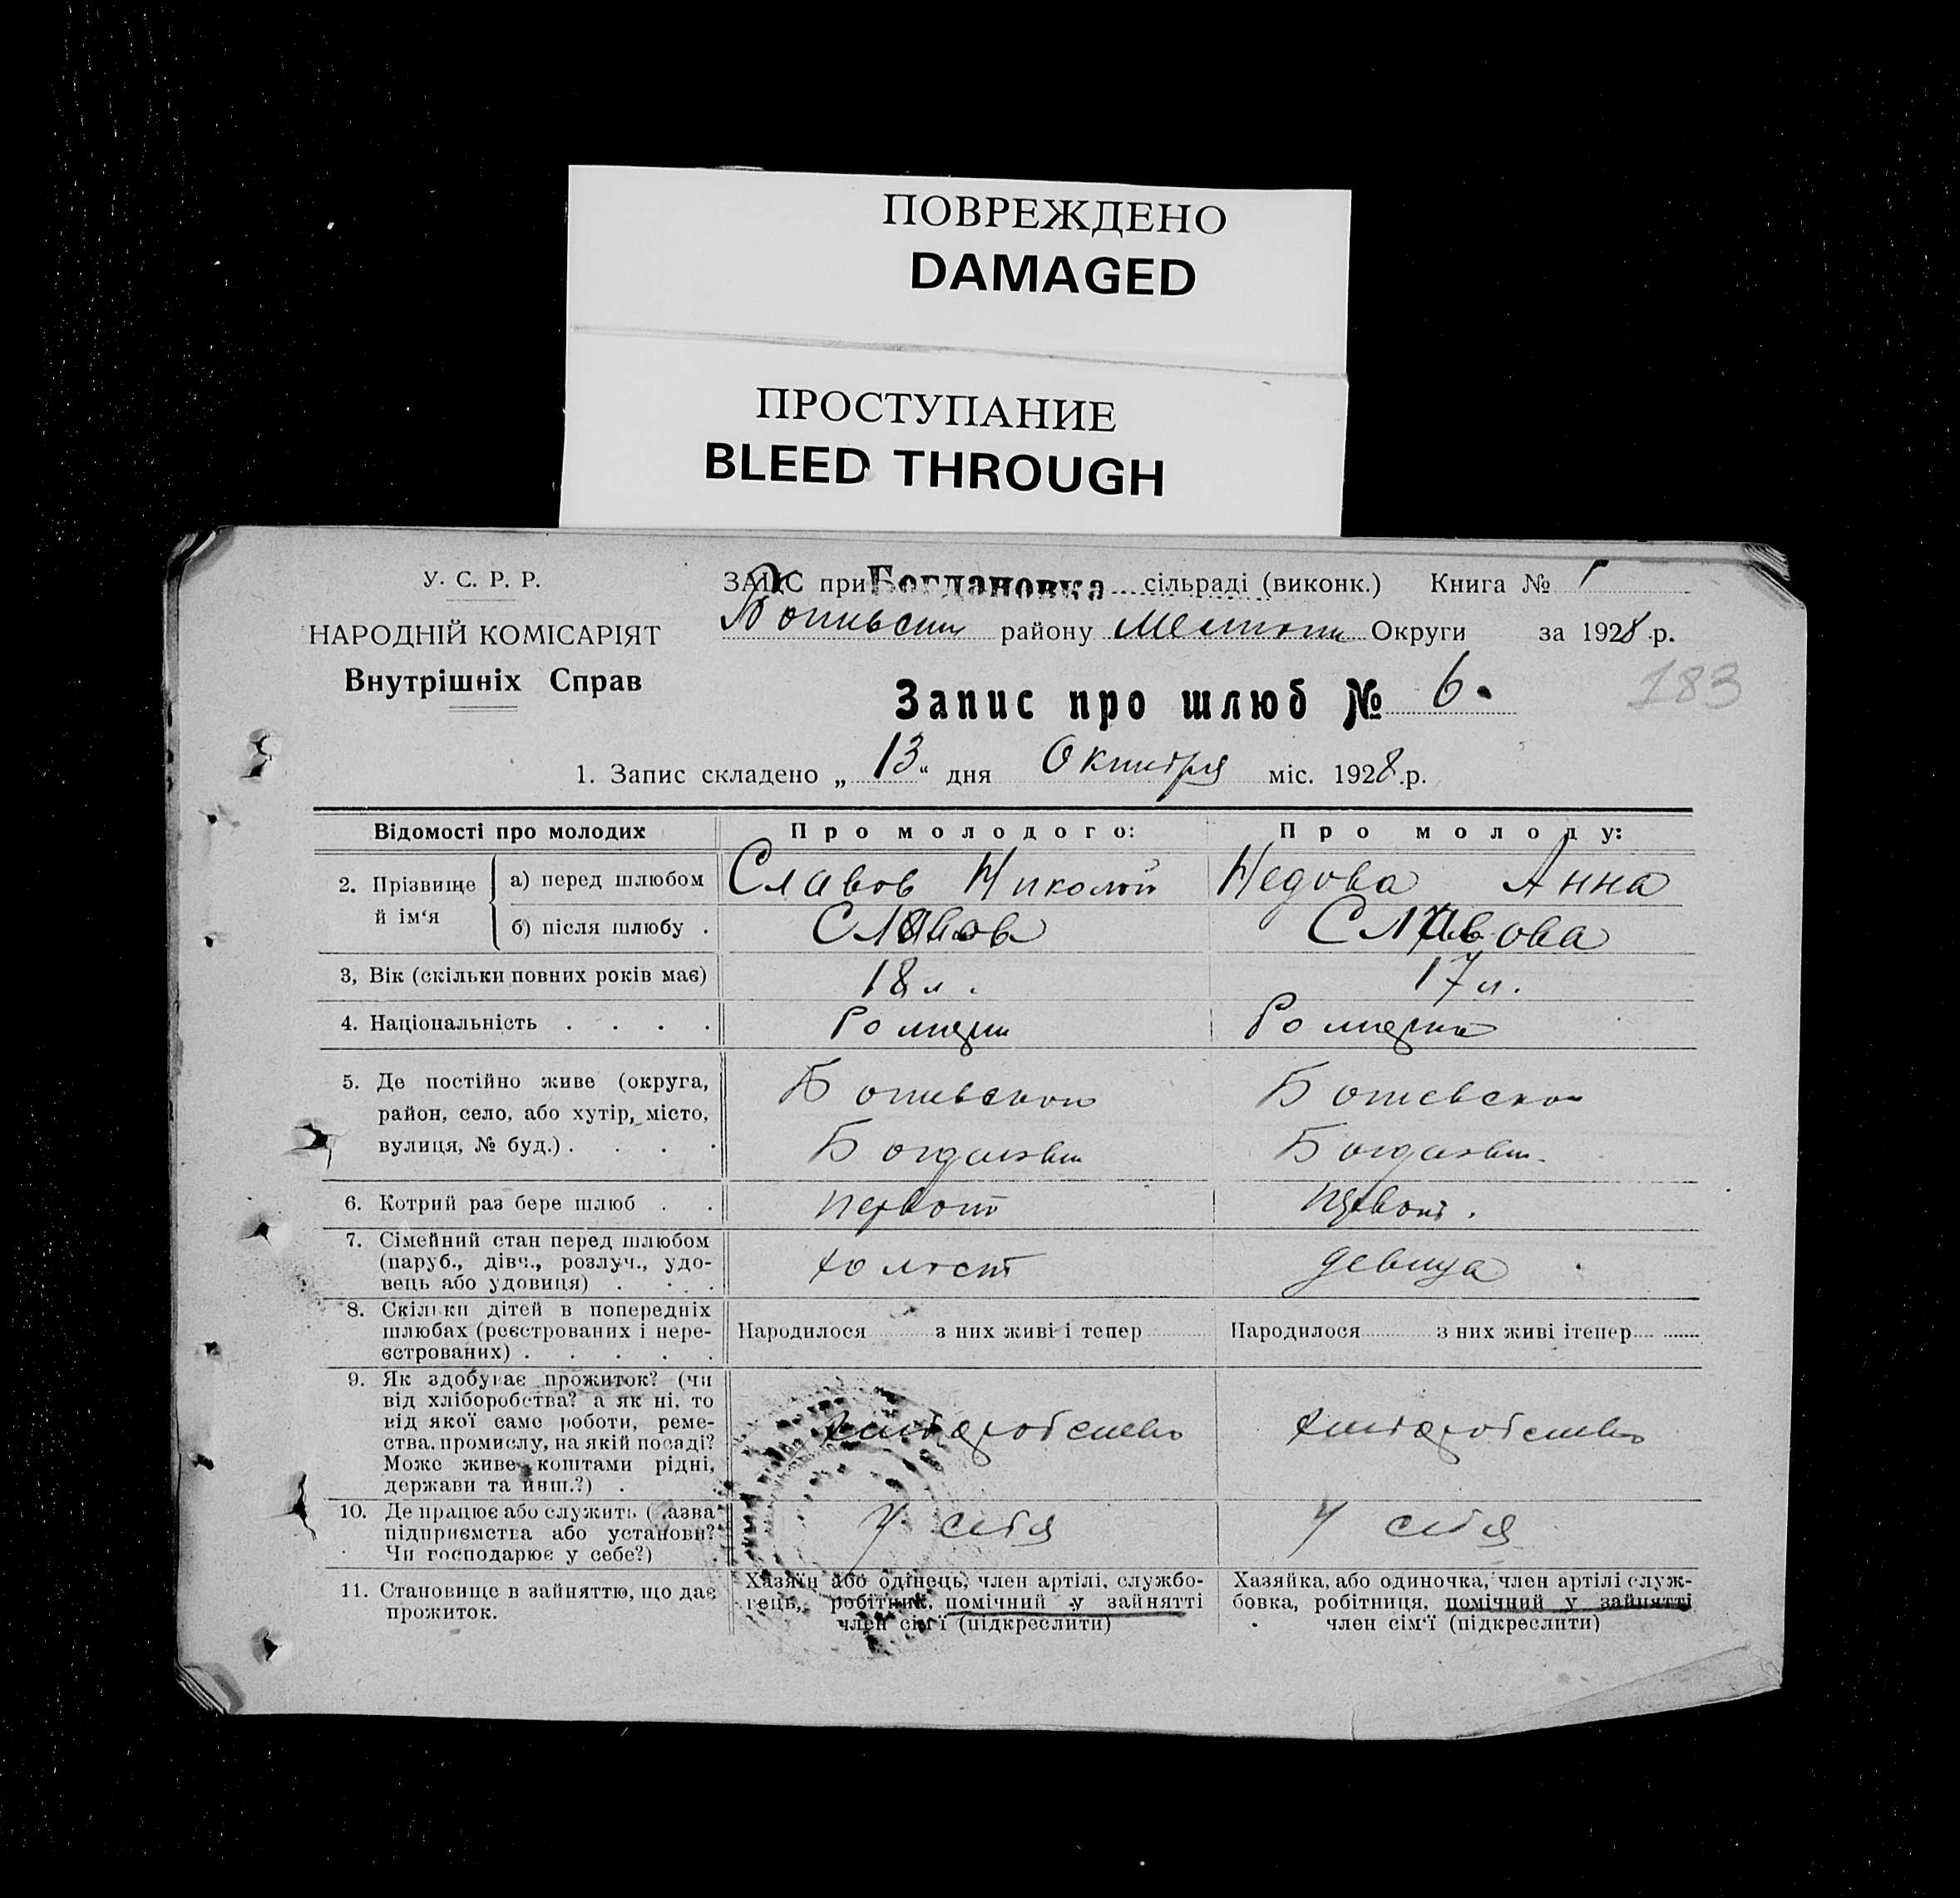 ПОВРЕЖДЕНО
DAMAGED
ПРОСТУПАНИЕ
BLEED THROUGH
У. С. Р. Р.
НАРОДНІЙ КОМІСАРІЯТ
Внутрішніх Справ
ЗАЦС при Богдановка сільраді (виконк.) Книга №
району Округи за 1928 р.
183
Запис про шлюб № 6.
1. Запис складено „13“ дня Октября міс. 1928 р.
Відомості про молодих Про молодого: Про молоду:
2. Прізвище й ім‘я
а) перед шлюбом Славов Николай Недова Анна
б) після шлюбу . Славов Славова
3, Вік (скільки повних років має) 18 л. 17 л.
4. Національність . . . .
5. Де постійно живе (округа,
район, село, або хутір, місто,
вулиця, № буд.) . . . .
6. Котрий раз бере шлюб . .
7. Сімейний стан перед шлюбом
(паруб., дівч., розлуч., удо-
вець або удовиця) . . . холост девица
8. Скільки дітей в попередніх
шлюбах (реєстрованих і нере-
єстрованих) . . . . .
Народилося з них живі і тепер Народилося з них живі ітепер
9. Як здобуває прожиток? (чи
від хліборобства? а як ні, то
від якої саме роботи, реме-
ства, промислу, на якій посаді?
Може живе коштами рідні,
держави та инш.?) . хлібаробство хлібаробство
10. Де працює або служить (назва
підприємства або установи?
Чи господарює у себе?) У себя У себя
11. Становище в зайняттю, що дає
прожиток.
Хазяїн або одінець, член артілі, службо-
вець, робітник, помічний у зайнятті
член сім‘ї (підкреслити)
Хазяйка, або одиночка, член артілі служ-
бовка, робітниця, помічний у зайнятті
член сім‘ї (підкреслити)